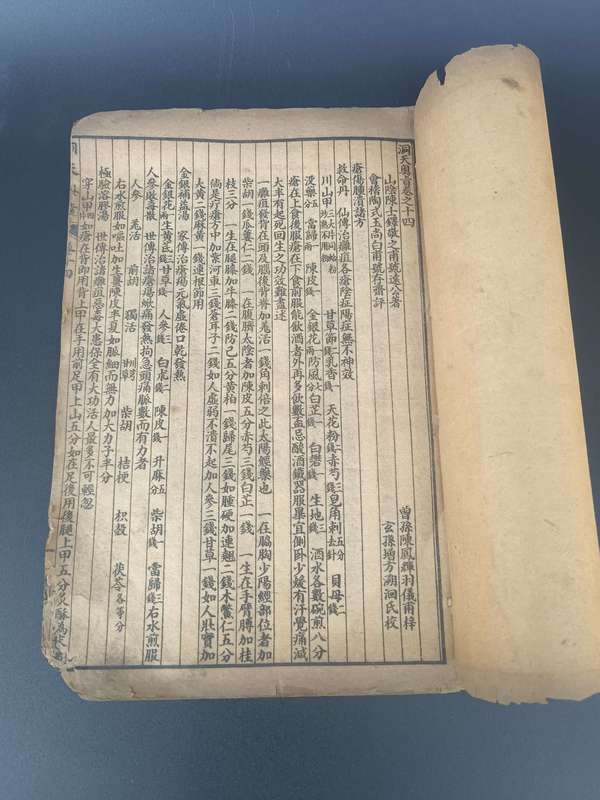 洞天奧旨卷之十四
山陰陳士鐸敬之甫號遠公著
會稽陶式玉尚白甫號存齋評
曾孫陳鳳輝羽儀甫梓
玄孫增方溯洄氏校
瘡瘍腫潰諸方
救命丹 仙傳治癰疽各瘡陰症陽症無不神效
川山甲三大片同蛤粉炒熟不用粉 甘草節二錢 乳香一錢 天花粉二錢 赤芍三錢 皂角刺五分去針 貝母二錢
沒藥五分 當歸一兩 陳皮一錢 金銀花一兩 防風七分 白芷一錢 白礬一錢 生地三錢 酒水各數碗煎八分
瘡在上食後服瘡在下食前服能飲酒者外再多飲數盃忌酸酒鐵器服畢宜側卧少緩有汗覺痛減
大半有起死回生之功效難盡述
一癰疽發背在頭及腦後背脊加羌活一錢角刺倍之此太陽經藥也 一在脇胸少陽經部位者加
柴胡一錢瓜蔞仁二錢 一在腹臍太陰者加陳皮五分赤芍三錢白芷一錢 一生在手臂膊加桂
枝三分 一生在腿膝加牛膝二錢防己五分黃柏一錢歸尾三錢如腫硬加連翹二錢木鱉仁五分
倘是疔瘡方中加紫河車三錢蒼耳子三錢如人虛弱不潰不起加人參三錢甘草一錢如人壯實加
大黃二錢麻黃一錢連根節用
金銀補益湯 家傳治瘡瘍元氣虛倦口乾發熱
金銀花二兩 生黃芪三錢 甘草一錢 人參三錢 白朮二錢 陳皮一錢 升麻五分 柴胡一錢 當歸三錢 右水煎服
人參敗毒散 世傳治諸瘡瘍焮痛發熱拘急頭痛脈數而有力者
人參 羌活 前胡 獨活 川芎 甘草 柴胡 桔梗 枳殼 茯苓各等分
右水煎服如嘔吐加生薑陳皮半夏如脈細而無力加大力子半分
極驗溶膠湯 世傳治諸癰疽惡毒大患保全有大功活人最多不可輕忽
穿山甲四片如瘡在背即用背上甲在手用前足甲上山五分如在足後用後腿上甲五分火酥為